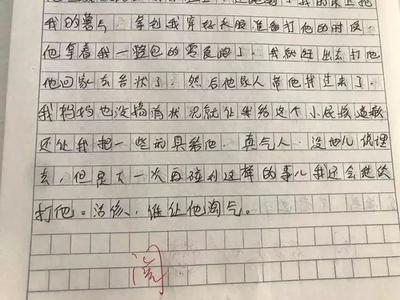 我的薯片，拿到我穿好衣服准备打他的时候
他拿着我一整包的零食跑了，我就追出去打他
他回家去告状了，然后他家人带他找过来了，
我妈妈也没搞清状况就让我给这个小屁孩道歉
还让我把一些玩具给他，真气人，没地儿说理
去，但是下一次再碰到这样的事儿我还会继续
打他。活该，谁让他淘气。
阅